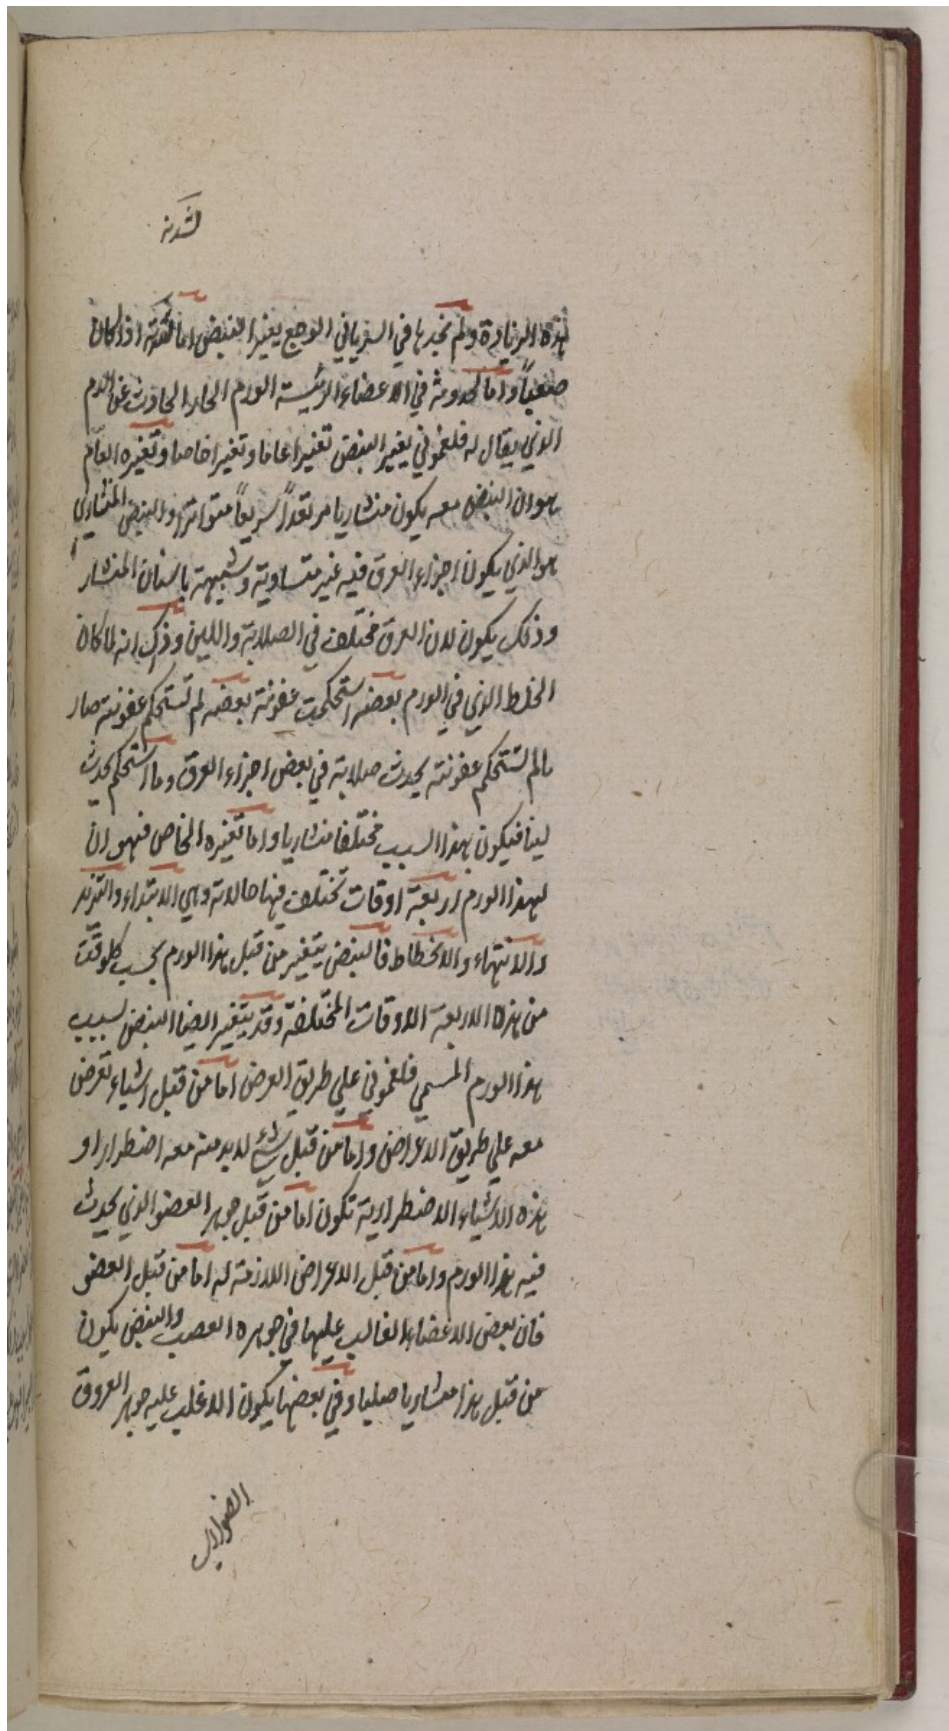 لشدته
هذه الزيادة ولم نجدها في السرياني الوجع يغير النبض اما لشدته اذا كان
صعباً واما لحدوثه في الاعضاء الرئيسة الورم الحار الحادث عن الدم
الذي يقال له فلغموني يغير النبض تغييرا عاما وتغيرا خاصا وتغيره العام
هو ان النبض معه يكون منشاريا مرتعداً سريعاً متواترا والنبض المنشاري
هو الذي يكون اجزاء العرق فيه غير متساوية وشبيهة باسنان المنشار
وذلك يكون لان العرق مختلف في الصلابة واللين وذلك انه لما كان
الخلط الذي في الورم بعضه استحكمت عفونته بعضه لم تستحكم عفونته صار
ما لم تستحكم عفونته يحدث صلابة في بعض اجزاء العرق وما استحكم يحدث
لينا فيكون بهذا السبب مختلفا منشاريا واما تغيره الخاص فهو ان
لهذا الورم اربعة اوقات تختلف فيها حالاته وهي الابتداء والتزيد
والانتهاء والانحطاط فالنبض يتغير من قبل هذا الورم بحسب كل وقت
من هذه الاربعة الاوقات المختلفة وقد يتغير ايضا النبض بسبب
هذا الورم المسمي فلغموني علي طريق العرض اما من قبل اشياء تعرض
معه علي طريق الاعراض واما من قبل شيء لابد منه معه اضطرارا و
هذه الاشياء الاضطرارية تكون اما من قبل جوهر العضو الذي يحدث
فيه هذا الورم واما من قبل الاعراض اللازمة له اما من قبل العضو
فان بعض الاعضاء الغالب عليها في جوهره العصب والنبض يكون
من قبل هذا منشاريا صلبا وفي بعضها يكون الاغلب عليه جوهر العروق
الضوارب